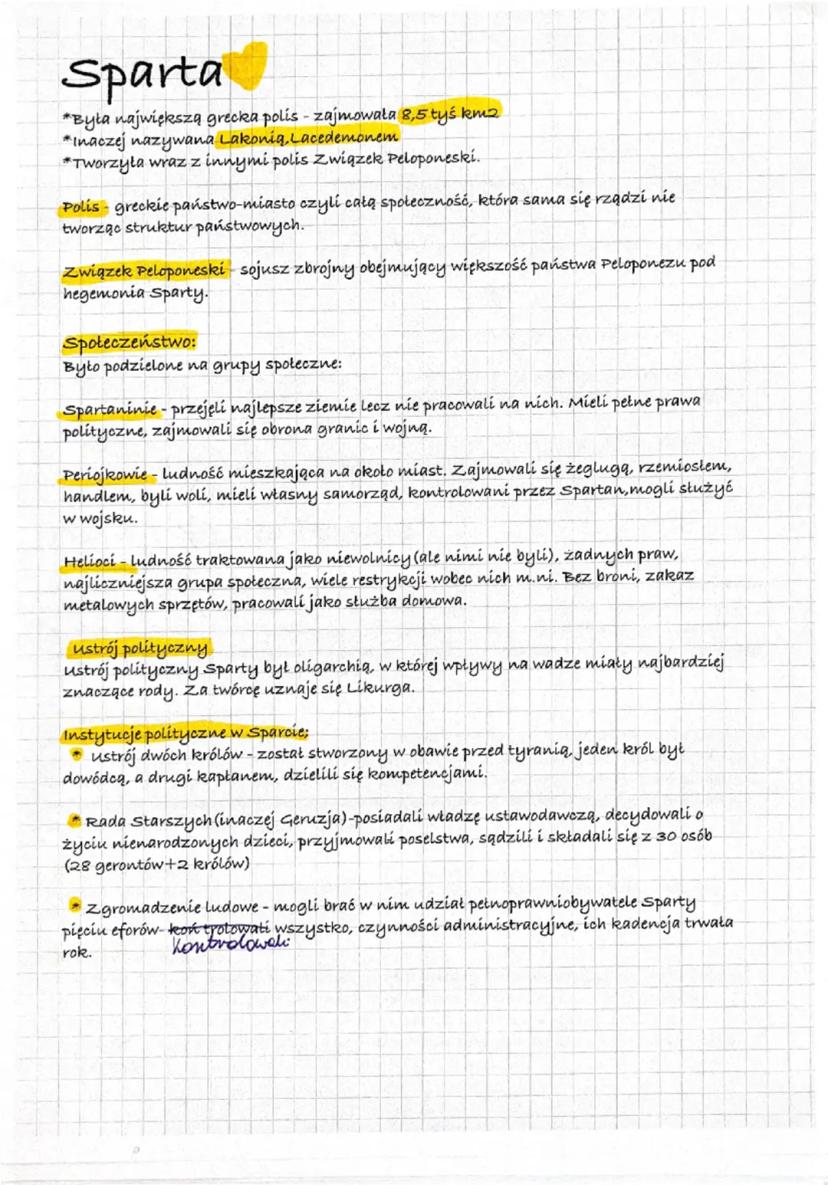 Sparta
*Była największą grecka polis - zajmowała 8,5 tyś km2
*Inaczej nazywana Lakonią,Lacedemonem
*Tworzyła wraz z innymi polis Związek Peloponeski.
Polis - greckie państwo-miasto czyli całą społeczność, która sama się rządzi nie
tworząc struktur państwowych.
Związek Peloponeski - sojusz zbrojny obejmujący większość państwa Peloponezu pod
hegemonia Sparty.
Społeczeństwo:
Było podzielone na grupy społeczne:
Spartaninie - przejęli najlepsze ziemie lecz nie pracowali na nich. Mieli pełne prawa
polityczne, zajmowali się obrona granic i wojną.
Periojkowie - ludność mieszkająca na około miast. Zajmowali się żeglugą, rzemiosłem,
handlem, byli woli, mieli własny samorząd, kontrolowani przez Spartan,mogli służyć
w wojsku.
Helioci - ludność traktowana jako niewolnicy(ale nimi nie byli), żadnych praw,
najliczniejsza grupa społeczna, wiele restrykcji wobec nich m.ni. Bez broni, zakaz
metalowych sprzętów, pracowali jako służba domowa.
Ustrój polityczny
Ustrój polityczny Sparty był oligarchią, w której wpływy na wadze miały najbardziej
znaczące rody. Za twórcę uznaje się Likurga.
Instytucje polityczne w Sparcie;
Ustrój dwóch królów - został stworzony w obawie przed tyranią, jeden król był
dowódcą, a drugi kapłanem, dzielili się kompetencjami.
Rada Starszych(inaczej Geruzja)-posiadali władzę ustawodawczą, decydowali o
życiu nienarodzonych dzieci, przyjmowali poselstwa, sądzili i składali się z 30 osób
(28 gerontów+2 królów)
Zgromadzenie ludowe - mogli brać w nim udział pełnoprawniobywatele Sparty
pięciu eforów- koń trolowali wszystko, czynności administracyjne, ich kadencja trwała
kontrolowali
rok.